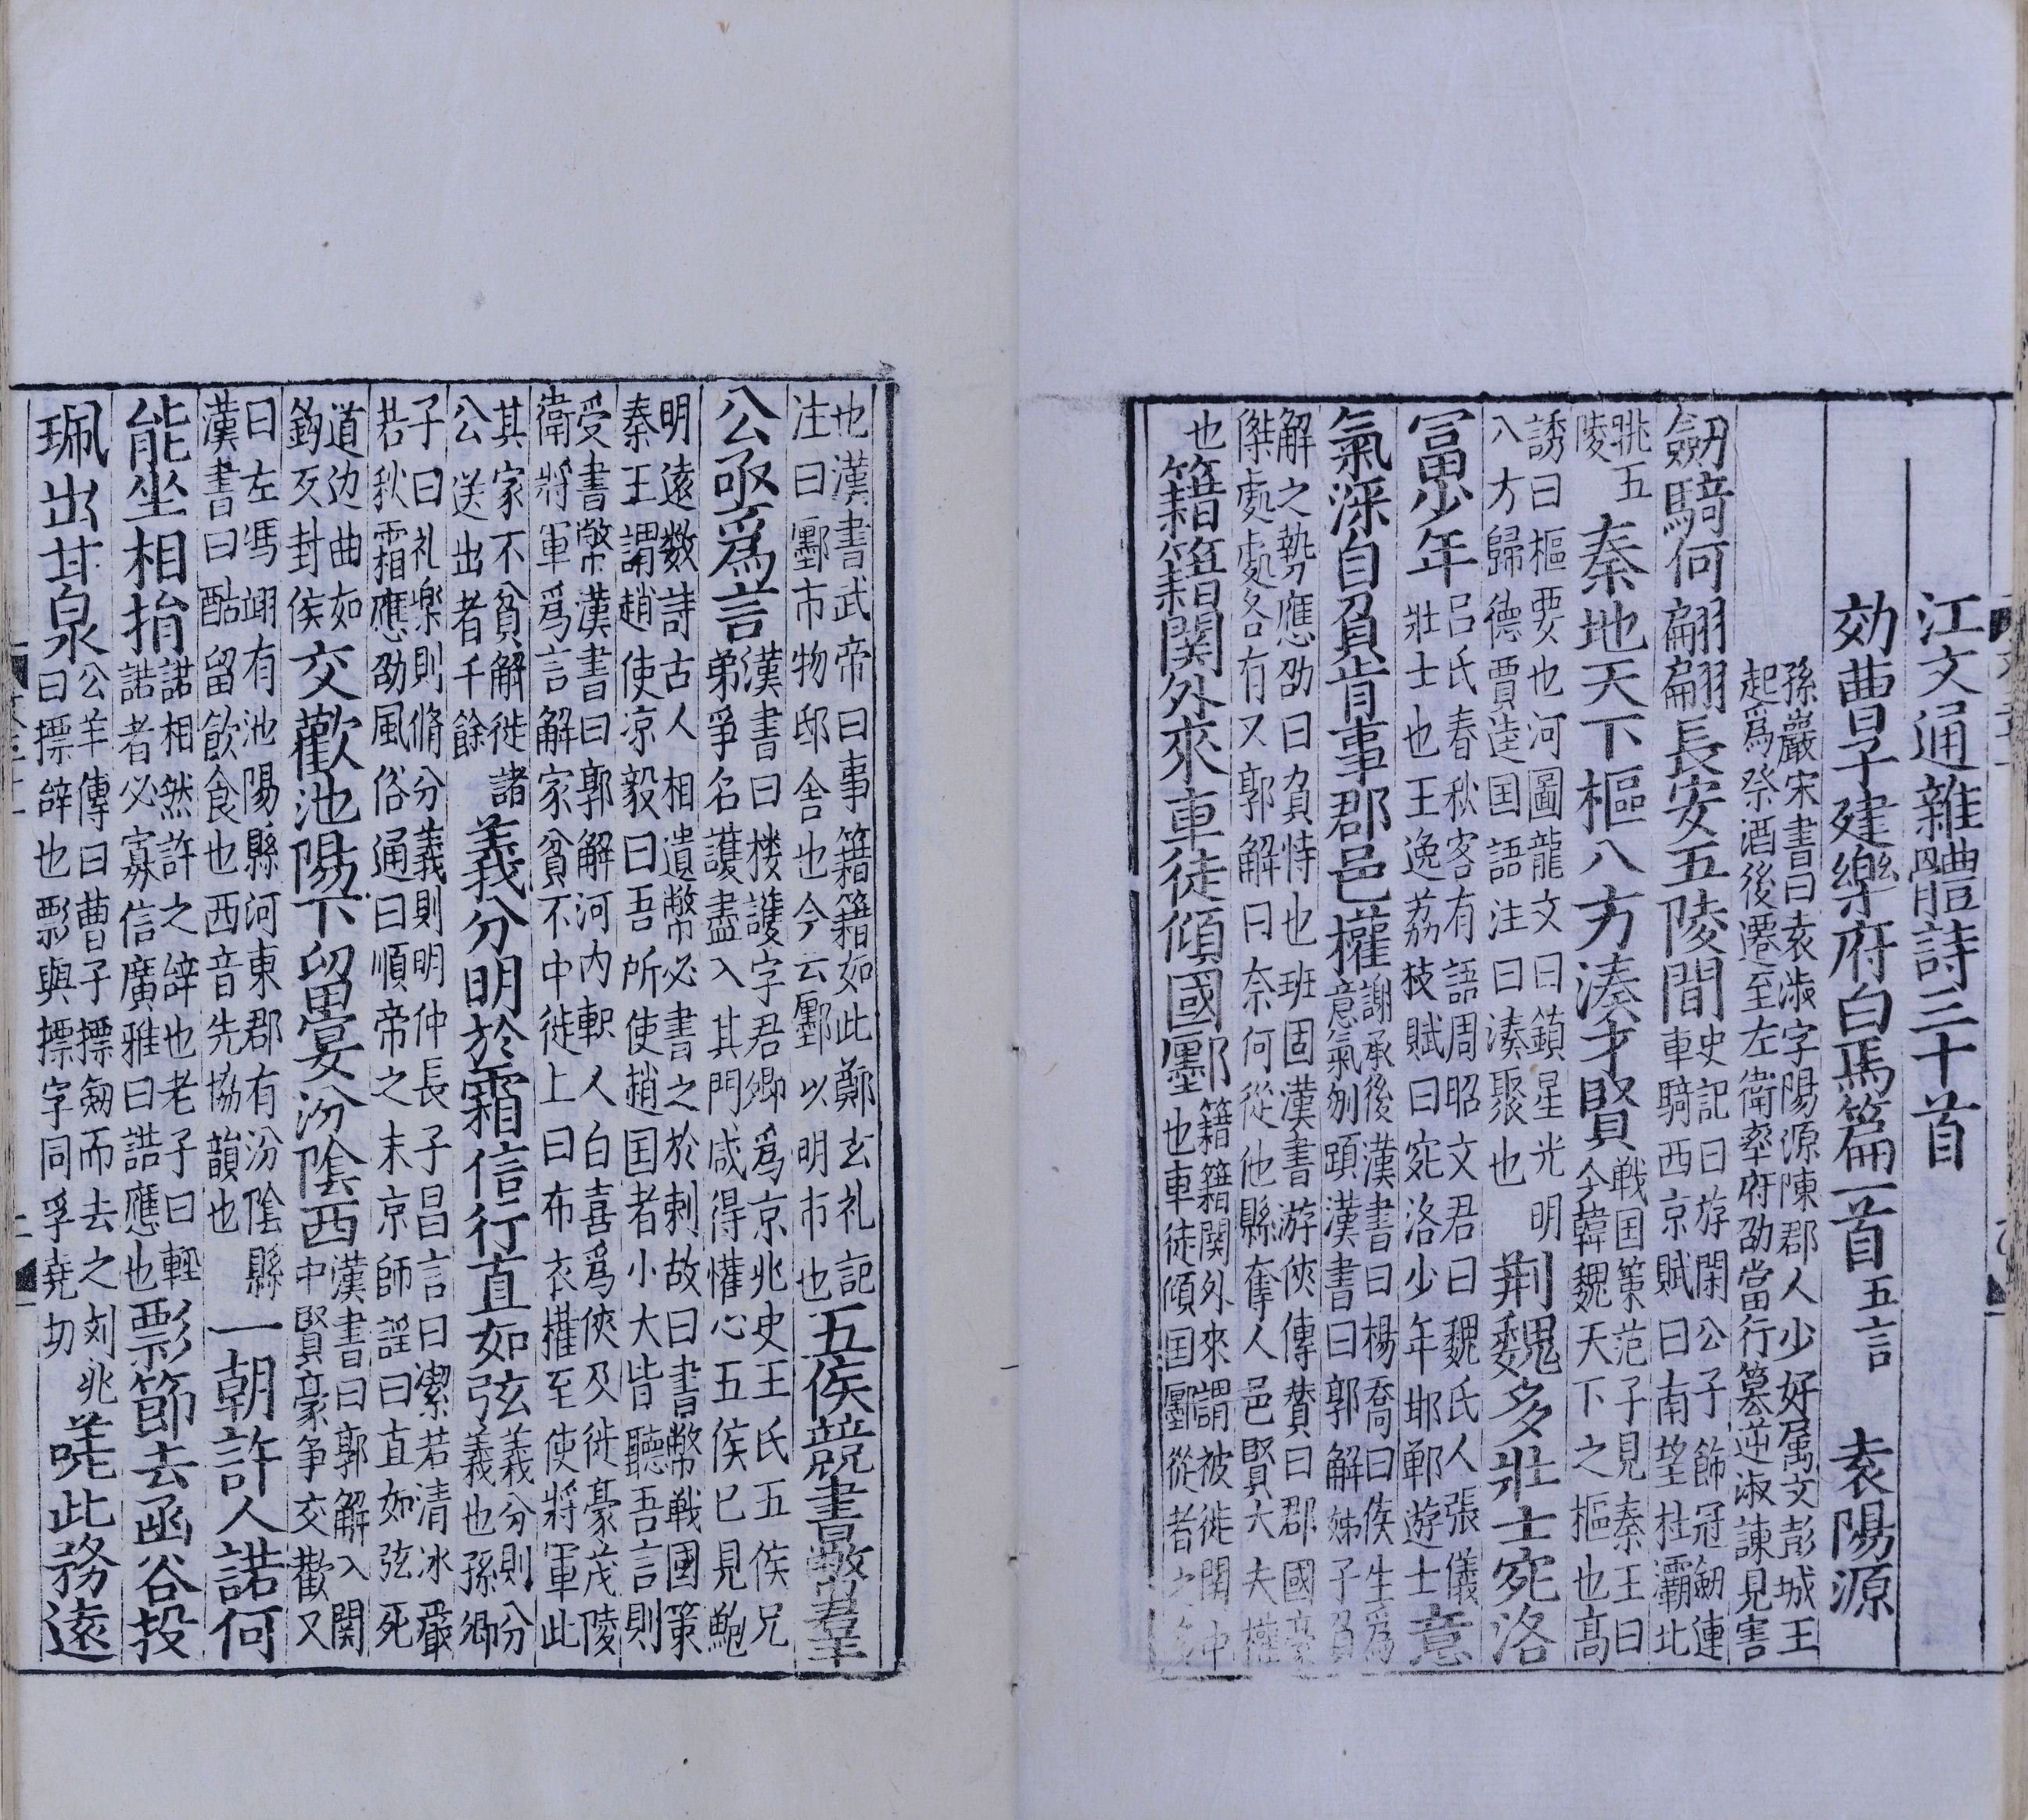 江文通雜體詩三十首
効曹子建樂府白馬篇一首五言　袁陽源
孫巖宋書曰袁淑字陽源陳郡人少好属文彭城王
起爲祭酒後遷至左衛率府劭當行篡逆淑諫見害
劒騎何翩翩長安五陵間史記曰游閑公子飾冠劒連
車騎西京賦曰南望杜灞北
眺五
陵
秦地天下樞八方湊才賢戦囯策范子見秦王曰
今韓魏天下之樞也高
誘曰樞要也河圖龍文曰鎮星光明
八方歸德賈逵囯語注曰湊聚也
荆魏多壯士宛洛
富少年吕氏春秋客有語周昭文君曰魏氏人張儀
壯士也王逸荔枝賦曰宛洛少年邯鄲遊士
意
氣深自負肯事郡邑權謝承後漢書曰楊喬曰侯生爲
意氣刎頸漢書曰郭解姊子負
解之勢應劭曰負恃也班固漢書游俠傳賛曰郡國豪
傑處處各有又郭解曰奈何從他縣奪人邑賢大夫權
也
籍籍関外來車徒傾國鄽籍籍関外來謂被徙関中
也車徒傾囯鄽從者之多
也漢書武帝曰事籍籍如此鄭玄礼記
注曰鄽市物邸舎也今云鄽以明市也
五侯競書幣羣
公亟爲言漢書曰楼護字君卿爲京兆史王氏五侯兄
弟爭名護盡入其門咸得懽心五侯已見鮑
明遠数詩古人相遺幣必書之於刺故曰書幣戦國策
秦王謂趙使凉毅曰吾所使趙囯者小大皆聽吾言則
受書幣漢書曰郭解河内軹人白喜爲俠及徙豪茂陵
衛將軍爲言解家貧不中徙上曰布衣權至使將軍此
其家不貧解徙諸
公送出者千餘
義分明於霜信行直如弦義分則分
義也孫卿
子曰礼樂則脩分義則明仲長子昌言曰潔若清冰嚴
若秋霜應劭風俗通曰順帝之末京師謡曰直如弦死
道边曲如
鈎反封侯
交歡池陽下留宴汾陰西漢書曰郭解入関
中賢豪爭交歡又
曰左馮翊有池陽縣河東郡有汾陰縣
漢書曰酷留飲食也西音先協韻也
一朝許人諾何
能坐相捐諾相然許之辝也老子曰輕
諾者必寡信廣雅曰諾應也
影節去函谷投
珮出甘泉公羊傳曰曹子摽劒而去之刘兆
曰摽辝也影與摽字同孚堯切
嗟此務遠